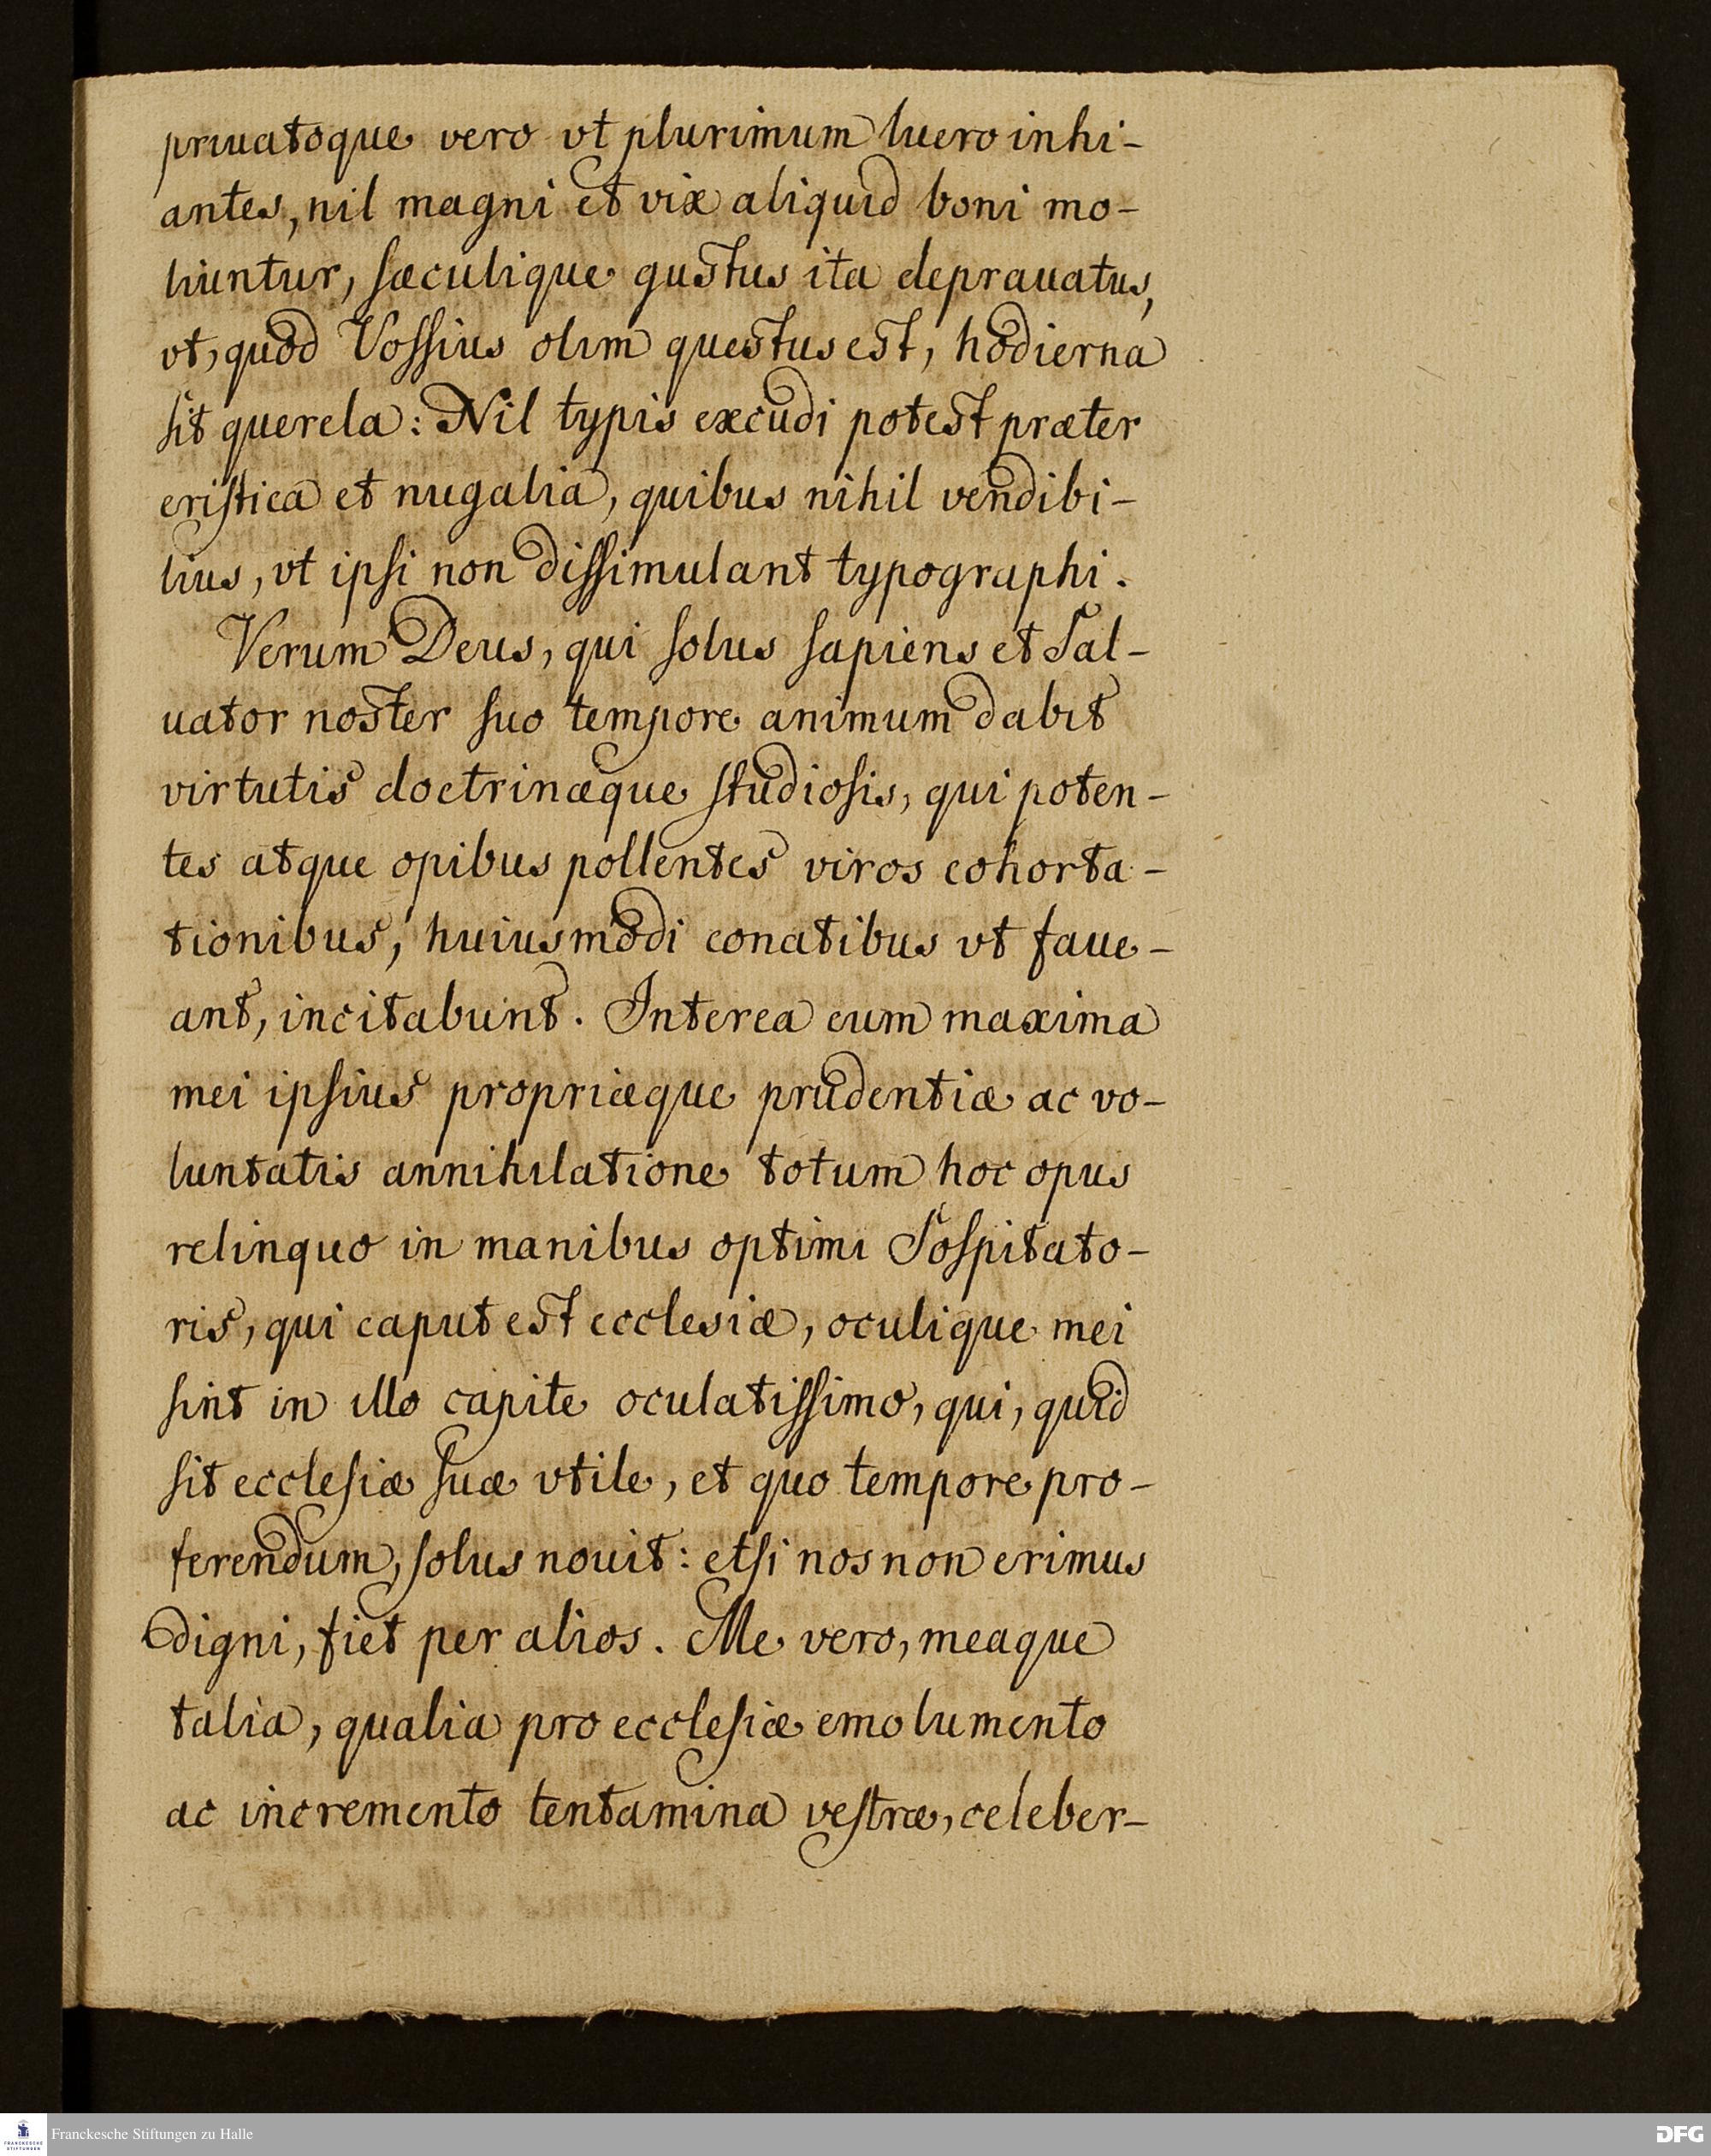 priuatoque vero vt plurimum lucro inhi-
antes, nil magni et vix aliquid boni mo-
liuntur, sæculique gustus ita deprauatus,
vt, quod Vossius olim questus est, hodierna
sit querela: Nil typis excudi potest præter
eristica et nugalia, quibus nihil vendibi-
lius, vt ipsi non dissimulant typographi.
Verum Deus, qui solus sapiens et Sal-
uator noster suo tempore animum dabit
virtutis doctrinæque studiosis, qui poten-
tes atque opibus pollentes viros cohorta-
tionibus, huiusmodi conatibus vt faue-
ant, incitabunt. Interea cum maxima
mei ipsius propriæque prudentiæ ac vo-
luntatis annihilatione totum hoc opus
relinquo in manibus optimi Sospitato-
ris, qui caput est ecclesiæ, oculique mei
sint in illo capite oculatissimo, qui, quid
sit ecclesiæ suæ vtile, et quo tempore pro-
ferendum, solus nouit: etsi nos non erimus
digni, fiet per alios. Me vero, meaque
talia, qualia pro ecclesiæ emolumento
ac incremento tentamina vestræ, celeber-
Franckesche Stiftungen zu Halle
DFG